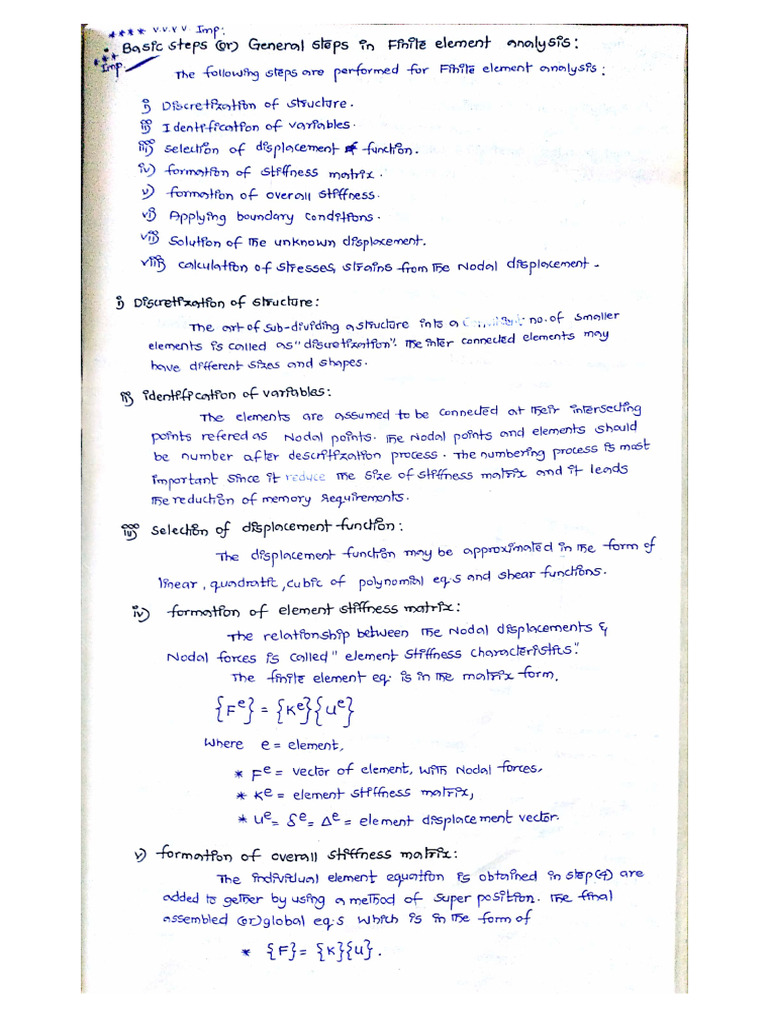 **** V.V.V V Imp:
• Basic steps (or) General steps in Finite element analysis:
*** Imp
The following steps are performed for Finite element analysis:
i) Discretization of structure.
ii) Identification of variables.
iii) selection of displacement function.
iv) formation of stiffness matrix.
v) formation of overall stiffness.
vi) Applying boundary conditions.
vii) Solution of the unknown displacement.
viii) calculation of stresses, strains from the Nodal displacement.
i) Discretization of structure:
The art of sub-dividing a structure into a no. of smaller
elements is called as "discretization". The inter connected elements may
have different sizes and shapes.
ii) identification of variables:
The elements are assumed to be connected at their intersecting
points refered as Nodal points. The Nodal points and elements should
be number after descritization process. The numbering process is most
important since it reduce the size of stiffness matrix and it leads
the reduction of memory requirements.
iii) selection of displacement function:
The displacement function may be approximated in the form of
linear, quadratic, cubic of polynomial eq.s and shear functions.
iv) formation of element stiffness matrix:
The relationship between the Nodal displacements &
Nodal forces is called "element stiffness characteristics".
The finite element eq. is in the matrix form,
{Fᵉ} = {Kᵉ}{Uᵉ}
Where e = element,
* Fᵉ = vector of element, with Nodal forces,
* Kᵉ = element stiffness matrix,
* Uᵉ = δᵉ = Δᵉ = element displacement vector.
v) formation of overall stiffness matrix:
The individual element equation is obtained in step(4) are
added to gether by using a method of super position. The final
assembled (or) global eq.s which is in the form of
* {F} = {K}{U}.